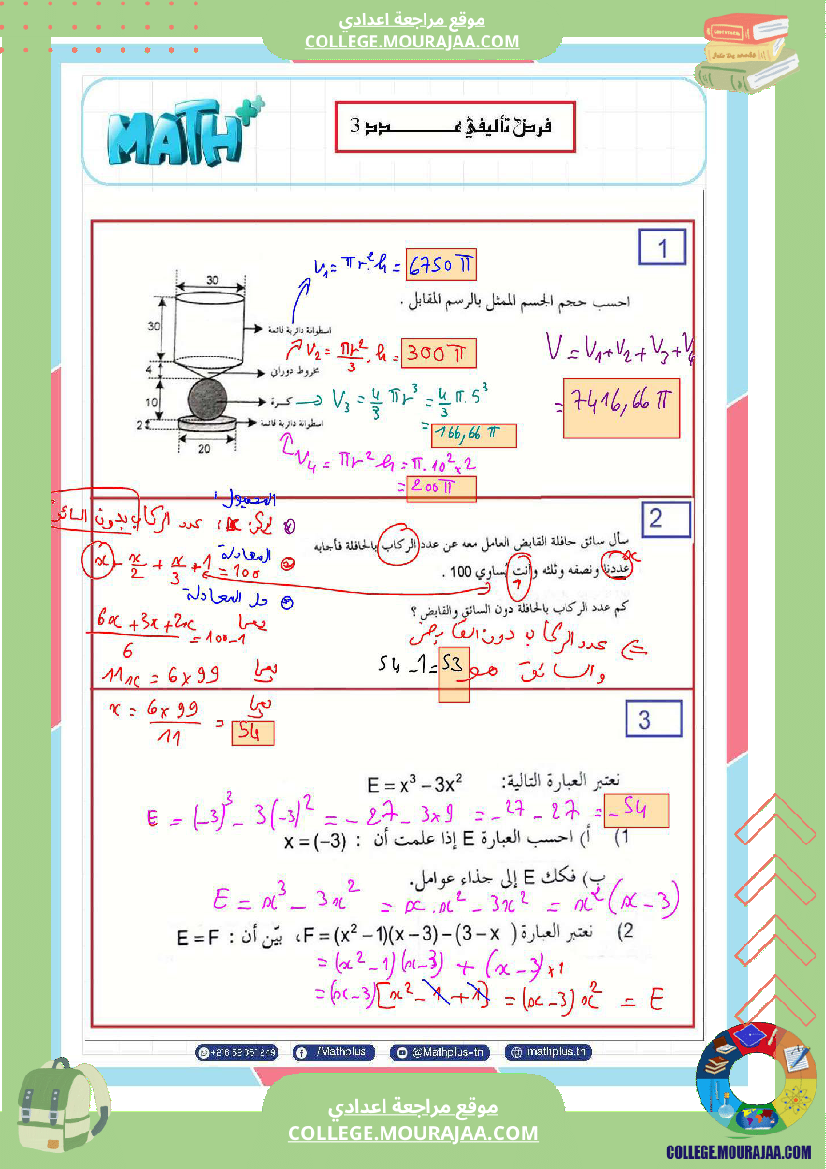 موقع مراجعة اعدادي
COLLEGE.MOURAJAA.COM
MATH
فرض تأليفي عـــدد 3
1
احسب حجم الجسم الممثل بالرسم المقابل .
30
30
4
10
2
20
اسطوانة دائرية قائمة
مخروط دوراني
كرة
اسطوانة دائرية قائمة
V₁ = πr².h = 6750π
V₂ = πr²/3 . h = 300π
V₃ = 4/3 πr³ = 4/3 π.5³
= 166,66π
V₄ = πr²h = π.10²×2
= 200π
V = V₁+V₂+V₃+V₄
= 7416,66π
2
سأل سائق حافلة القابض العامل معه عن عدد الركاب بالحافلة فأجابه
عددنا ونصفه وثلثه وأنت تساوي 100 .
كم عدد الركاب بالحافلة دون السائق والقابض ؟
x
1
المجهول :
ليكن x : عدد الركاب بدون السائق
المعادلة
x + x/2 + x/3 + 1 = 100
حل المعادلة
6x+3x+2x/6 = 100-1 يعني
11x = 6×99 يعني
x = 6×99/11 = 54 يعني
عدد الركاب دون القابض
والسائق هو 54-1=53
3
نعتبر العبارة التالية: E = x³ – 3x²
E = (-3)³ - 3(-3)² = -27 - 3×9 = -27 - 27 = -54
1) أ) احسب العبارة E إذا علمت أن : x = (–3)
ب) فكك E إلى جذاء عوامل.
E = x³ - 3x² = x.x² - 3x² = x²(x-3)
2) نعتبر العبارة F = (x² –1)(x –3)–(3–x )، بيّن أن : E = F
= (x²-1)(x-3) + (x-3)×1
= (x-3)[x²-1+1] = (x-3)x² = E
/Mathplus
@Mathplus-tn
mathplus.tn
موقع مراجعة اعدادي
COLLEGE.MOURAJAA.COM
COLLEGE.MOURAJAA.COM